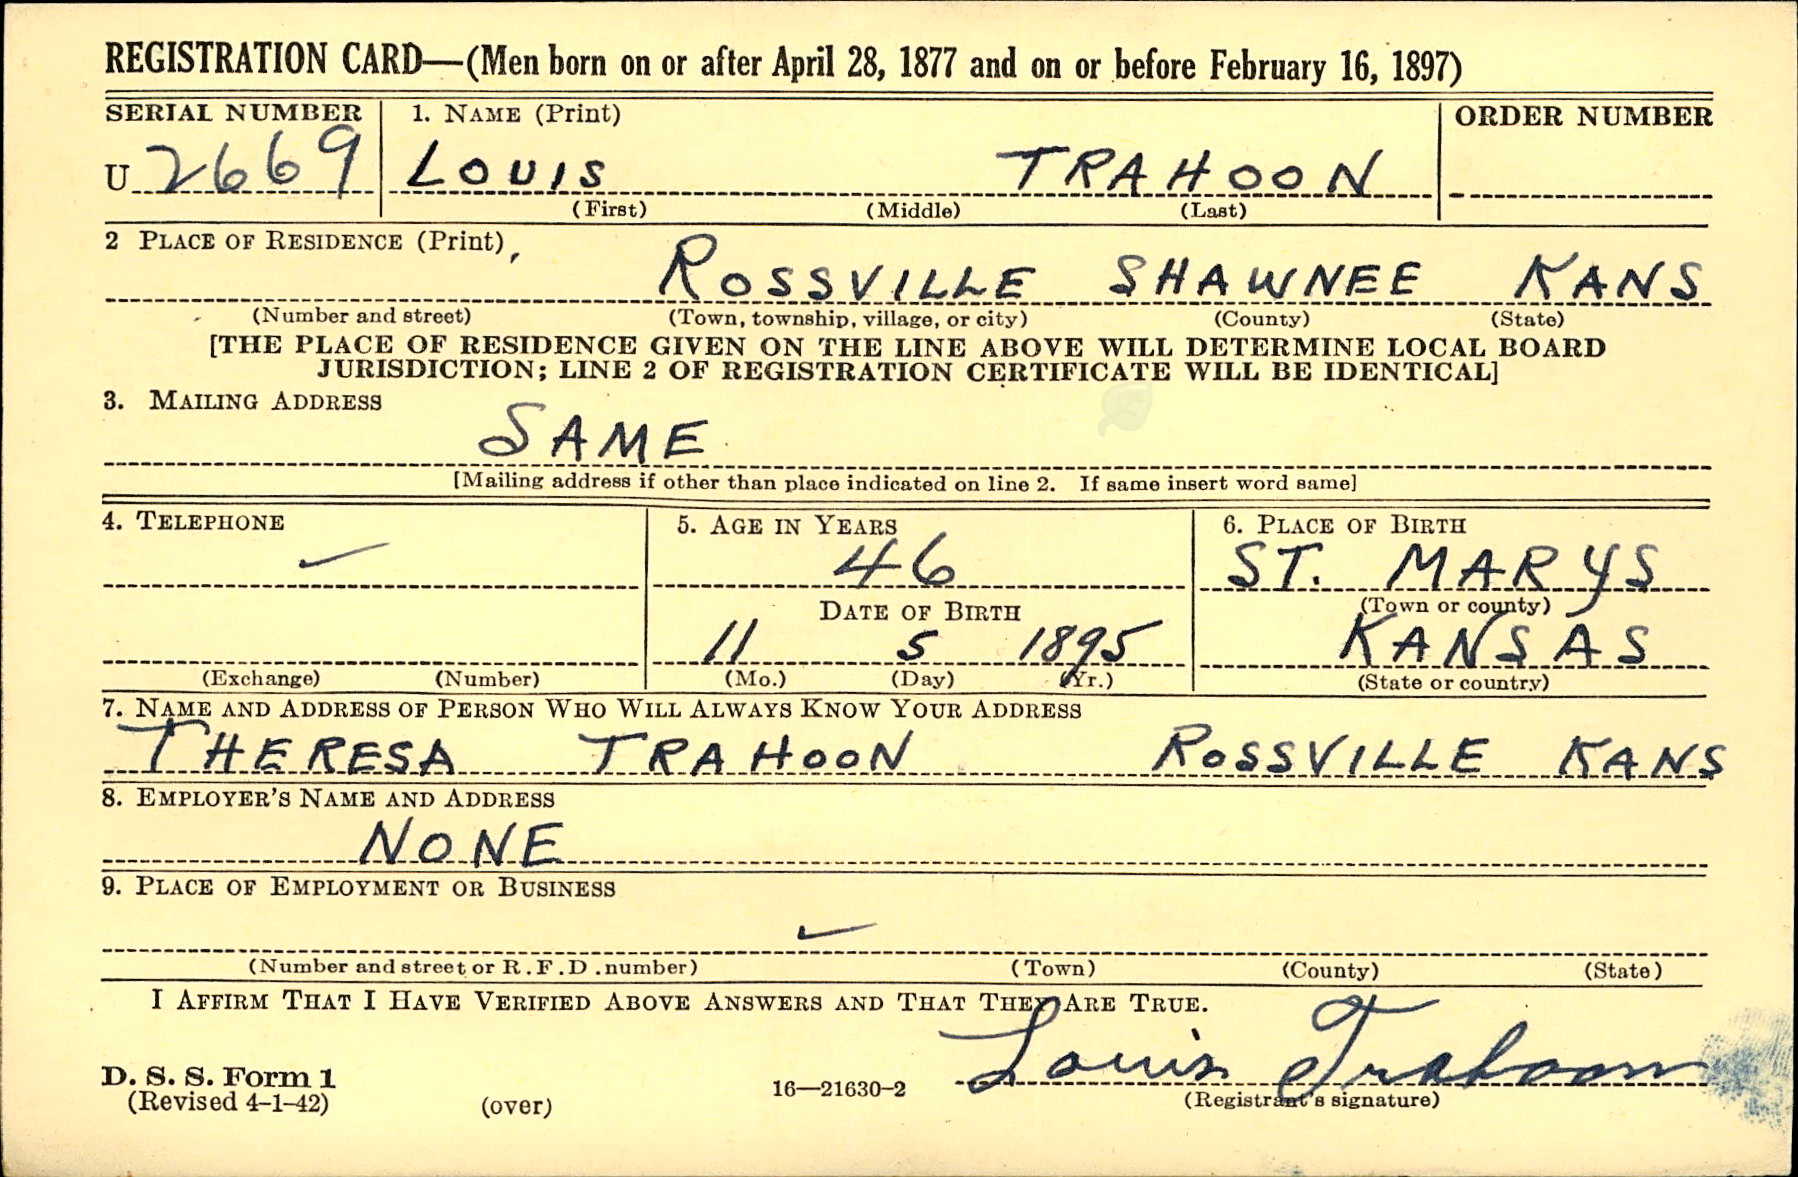 REGISTRATION CARD—(Men born on or after April 28, 1877 and on or before February 16, 1897)
SERIAL NUMBER 1. NAME (Print) ORDER NUMBER
U 2669 LOUIS TRAHOON
(First) (Middle) (Last)
2 PLACE OF RESIDENCE (Print)
ROSSVILLE SHAWNEE KANS
(Number and street) (Town, township, village, or city) (County) (State)
[THE PLACE OF RESIDENCE GIVEN ON THE LINE ABOVE WILL DETERMINE LOCAL BOARD
JURISDICTION; LINE 2 OF REGISTRATION CERTIFICATE WILL BE IDENTICAL]
3. MAILING ADDRESS
SAME
[Mailing address if other than place indicated on line 2. If same insert word same]
4. TELEPHONE 5. AGE IN YEARS 6. PLACE OF BIRTH
46 ST. MARYS
DATE OF BIRTH (Town or county)
11 5 1895 KANSAS
(Exchange) (Number) (Mo.) (Day) (Yr.) (State or country)
7. NAME AND ADDRESS OF PERSON WHO WILL ALWAYS KNOW YOUR ADDRESS
THERESA TRAHOON ROSSVILLE KANS
8. EMPLOYER'S NAME AND ADDRESS
NONE
9. PLACE OF EMPLOYMENT OR BUSINESS
(Number and street or R.F.D. number) (Town) (County) (State)
I AFFIRM THAT I HAVE VERIFIED ABOVE ANSWERS AND THAT THEY ARE TRUE.
Louis Trahoon
D. S. S. Form 1
(Revised 4-1-42) (over) 16—21630-2 (Registrant's signature)